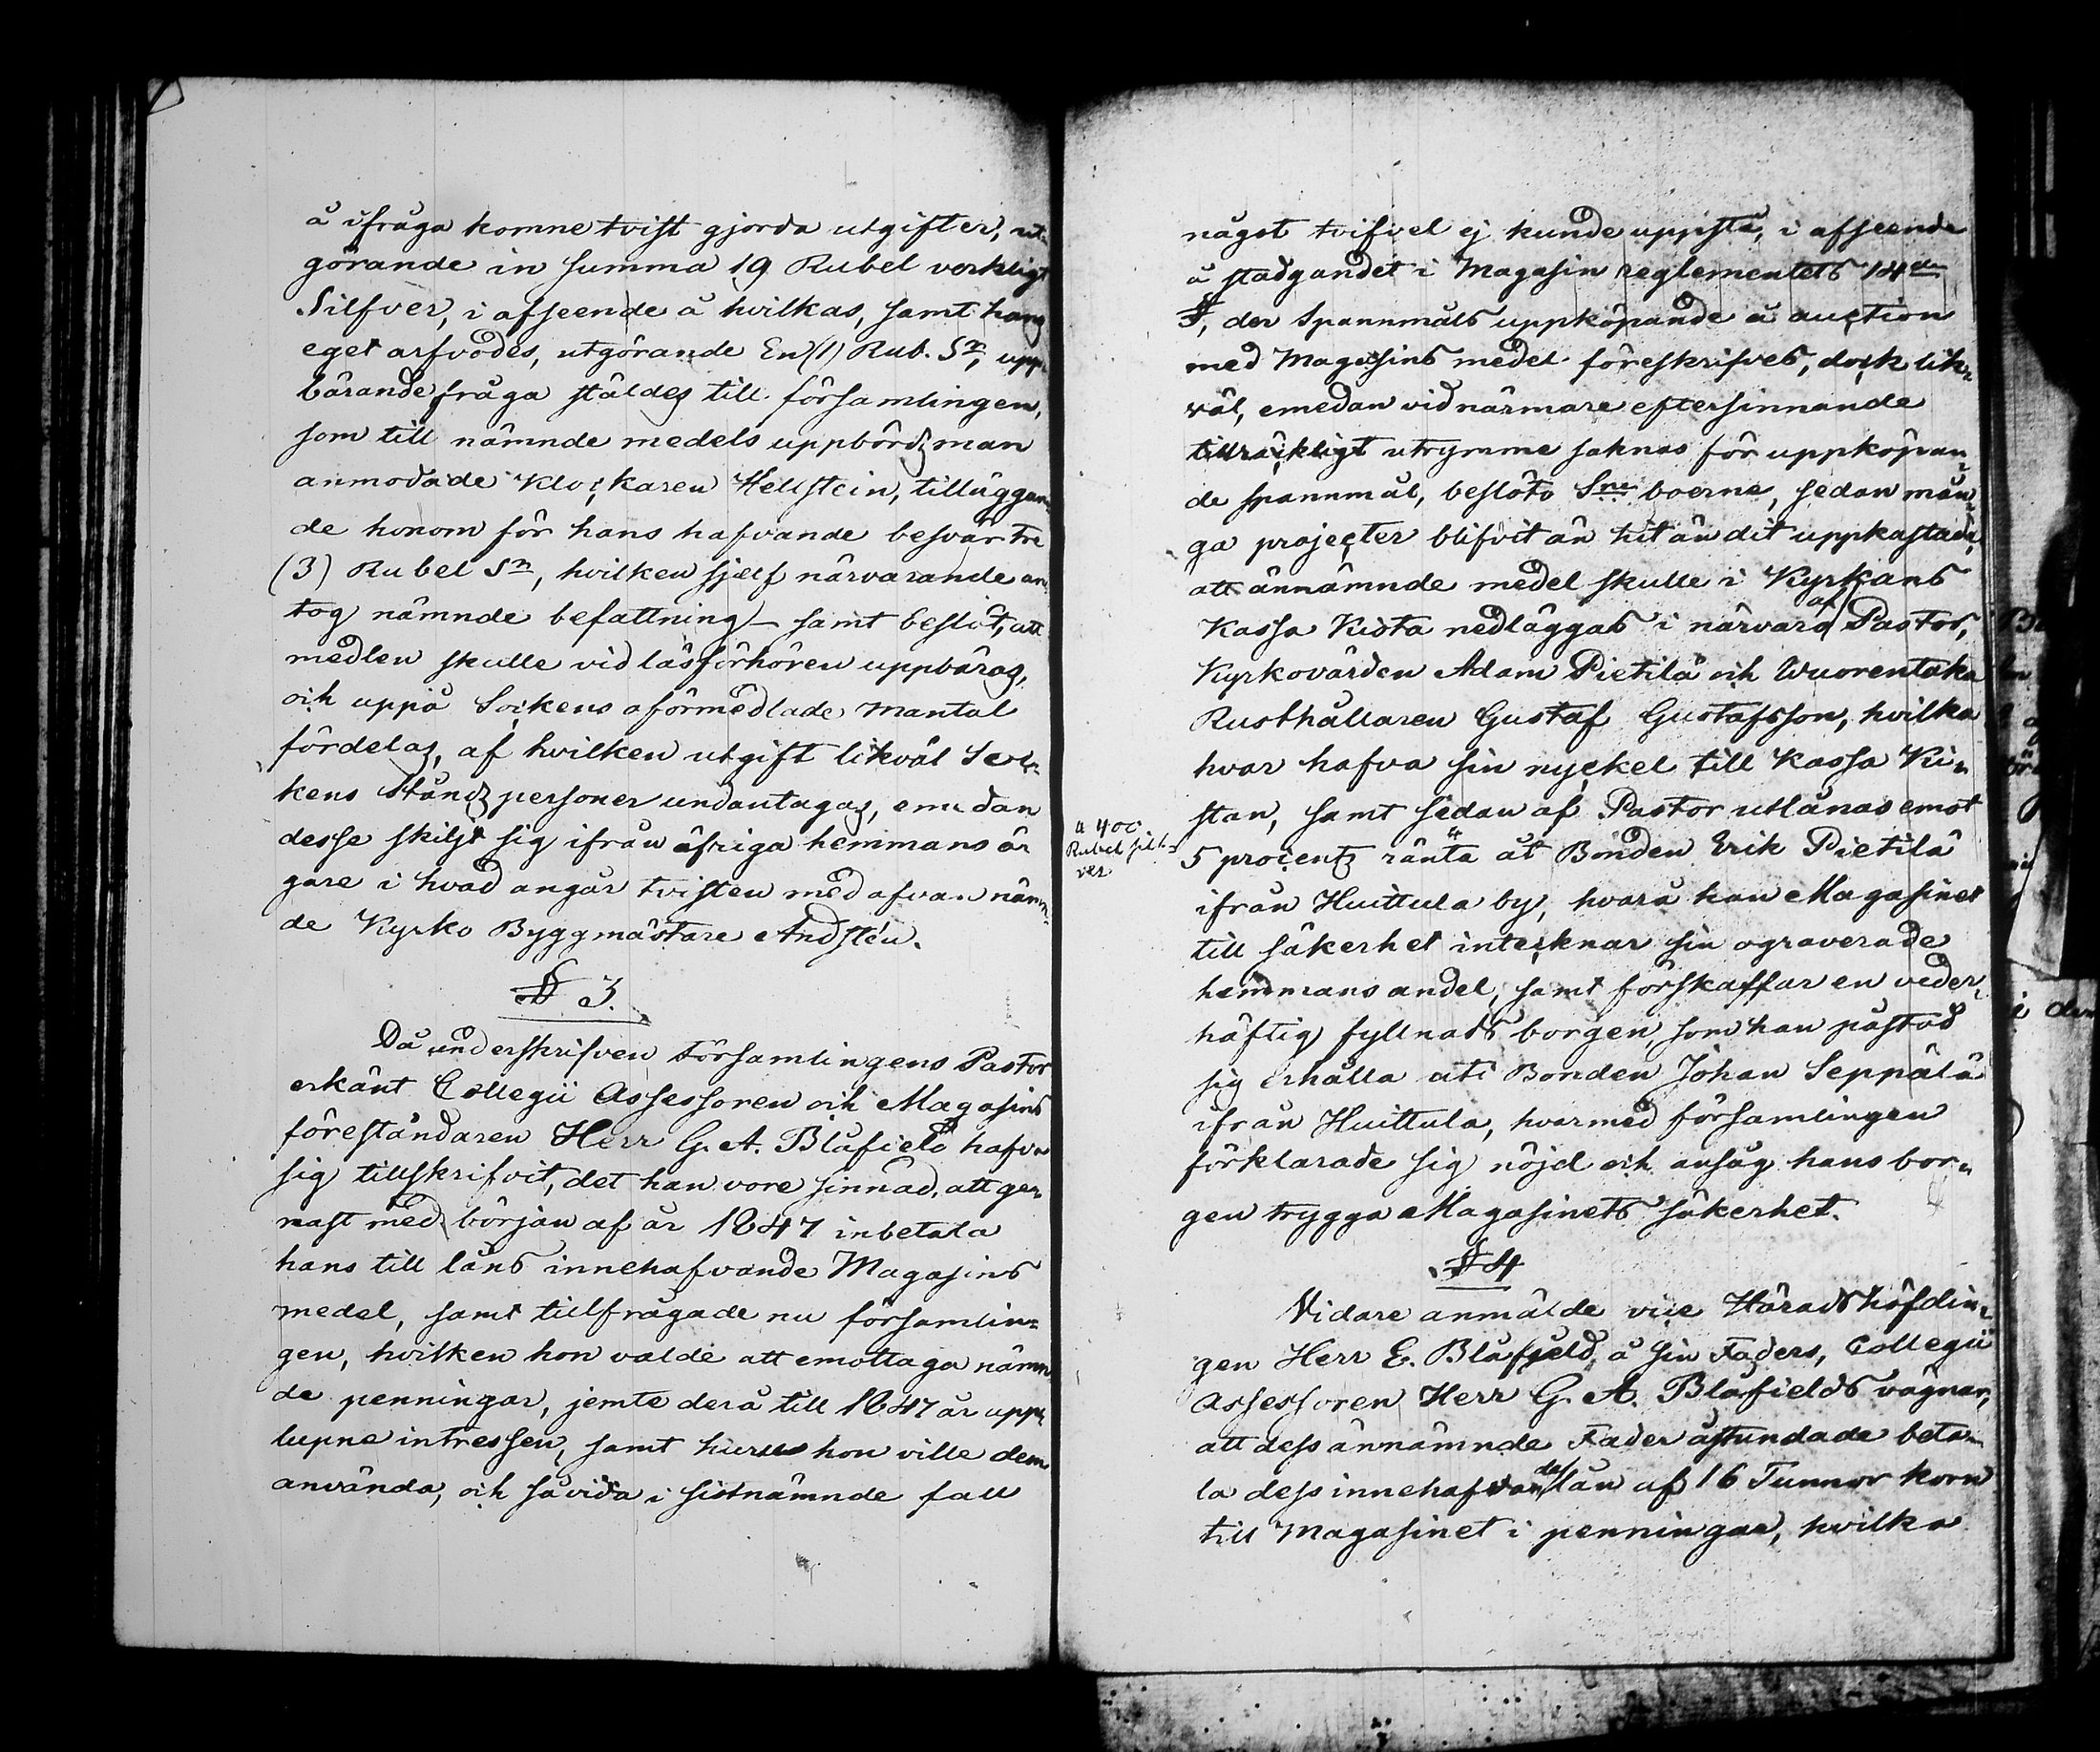 å ifråga komne tvist gjorda utgifter, ut-
görande in summa 19 Rubel verkligt
Silfver, i afseende å hvilkas, samt hans
eget arfvodes, utgörande En (1) Rub. Sr, upp-
bärande, fråga stäldes till församlingen,
som till nämnde medels uppbördsman
anmodade Klockaren Hellstein, tilläggan-
de honom för hans hafvande besvär tre
(3) Rubel Sr, hvilken sjelf närvarande an-
tog nämnde befattning – samt beslöt, att
medlen skulle vid läsförhören uppbäras,
och uppå Sockens oförmedlade mantal
fördelas, af hvilken utgift likväl Soc-
kens Ståndspersoner undantagas, emedan
desse skiljt sig ifrån öfriga hemmans är
gare i hvad angår tvisten med ofvan nämn-
de Kyrko Byggmästare Andstén.
§ 3.
Då underskrifven Församlingens Pastor
erkänt Collegii Assessoren och Magasins
föreståndaren Herr G. A. Blåfield hafva
sig tillskrifvit, det han vore sinnad, att ge-
nast med början af år 1847 inbetala
hans till låns innehafvande Magasins
medel, samt tillfrågade nu församlin-
gen, hvilken hon valde att emottaga nämn
de penningar, jemte derå till 1847 år upp-
lupne intressen, samt huru hon ville dem
använda, och såvida i sistnämnde fall
något tvifvel ej kunde uppstå, i afseende
å stadgandet i Magasin reglementets 14de
§, der Spannmåls uppköpande å auction
med Magasins medel föreskrifves, dock lik-
väl, emedan vid närmare eftersinnande
tillräckligt utrymme saknas för uppköpan-
de spannmål, beslöto Sne boerne, sedan mån-
ga projecter blifvit än hit än dit uppkastade,
att ännämnde medel skulle i Kyrkans
Kassa Kista nedläggas i närvaro af Pastor,
Kyrkovärden Adam Pietilä och Wuorentaka
Rusthållaren Gustaf Gustafsson, hvilka
hvar hafva sin nyckel till Kassa Ki-
stan, samt sedan af Pastor utlånas emot
a 400
Rubel silf-
ver
5 procents ränta åt Bonden Erik Pietilä
ifrån Huittula by, hvarå han Magasinet
till säkerhet intecknar sin ograverade
hemmans andel, samt förskaffar en veder-
häftig fyllnads borgen, som han påstod
sig erhålla uti Bonden Johan Seppälä
ifrån Huittula, hvarmed församlingen
förklarade sig nöjd och ansåg hans bor-
gen trygga Magasinets säkerhet.
§ 4
Vidare anmälde vice Häradshöfdin-
gen Herr E. Blåfjeld, å sin Faders, Collegii
Assessoren Herr G. A. Blåfields vägnar,
att dess ännämnde Fader åstundade beta-
la dess innehafvande lån af 16 Tunnor korn
till Magasinet i penningar, hvilka